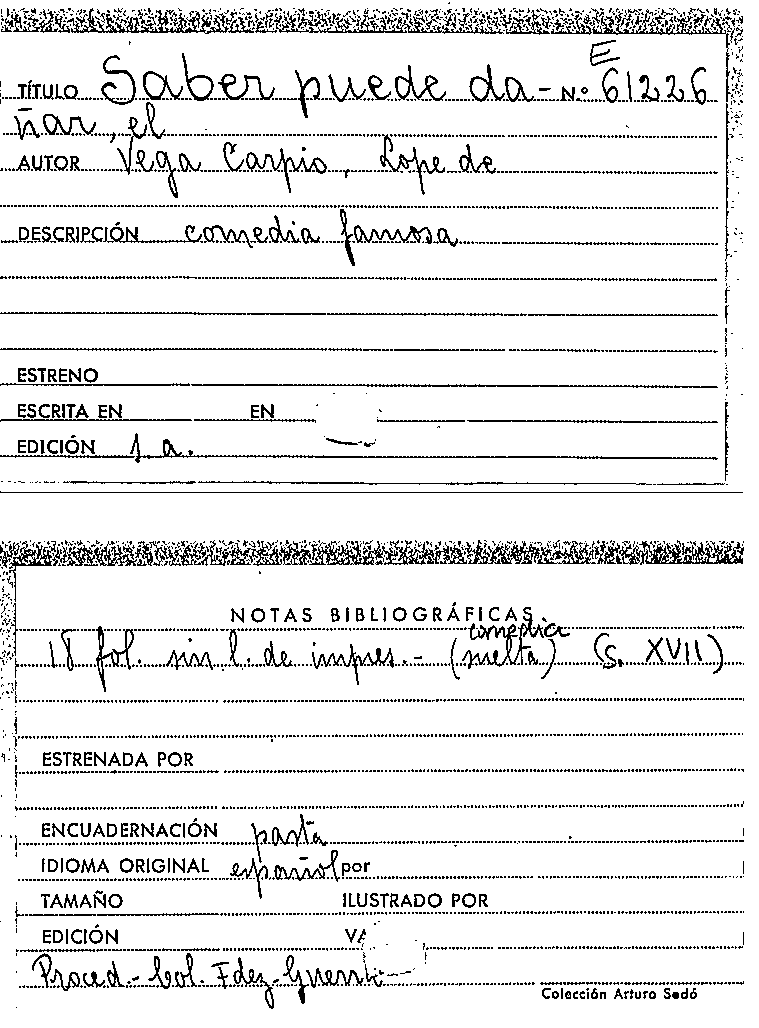 E
TÍTULO Saber puede da- N.º 61226
ñar, el
AUTOR Vega Carpio, Lope de
DESCRIPCIÓN comedia famosa
ESTRENO
ESCRITA EN EN
EDICIÓN s.a.
NOTAS BIBLIOGRÁFICAS
comedia
18 fol. sin l. de impres.- (suelta) (S. XVII)
ESTRENADA POR
ENCUADERNACIÓN pasta
IDIOMA ORIGINAL español por
TAMAÑO ILUSTRADO POR
EDICIÓN
Proced.- Col. Fdez-Guerra
Colección Arturo Sedó